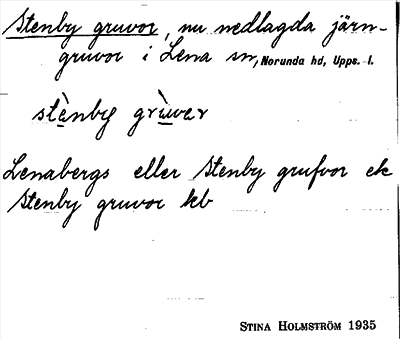 Stenby gruvor, nu nedlagda järn-
gruvor i Lena sn, Norunda hd, Upps. l.
stè̱nby grù̱ver
Lenabergs eller Stenby grufvor ek
Stenby gruvor kb
STINA HOLMSTRÖM 1935